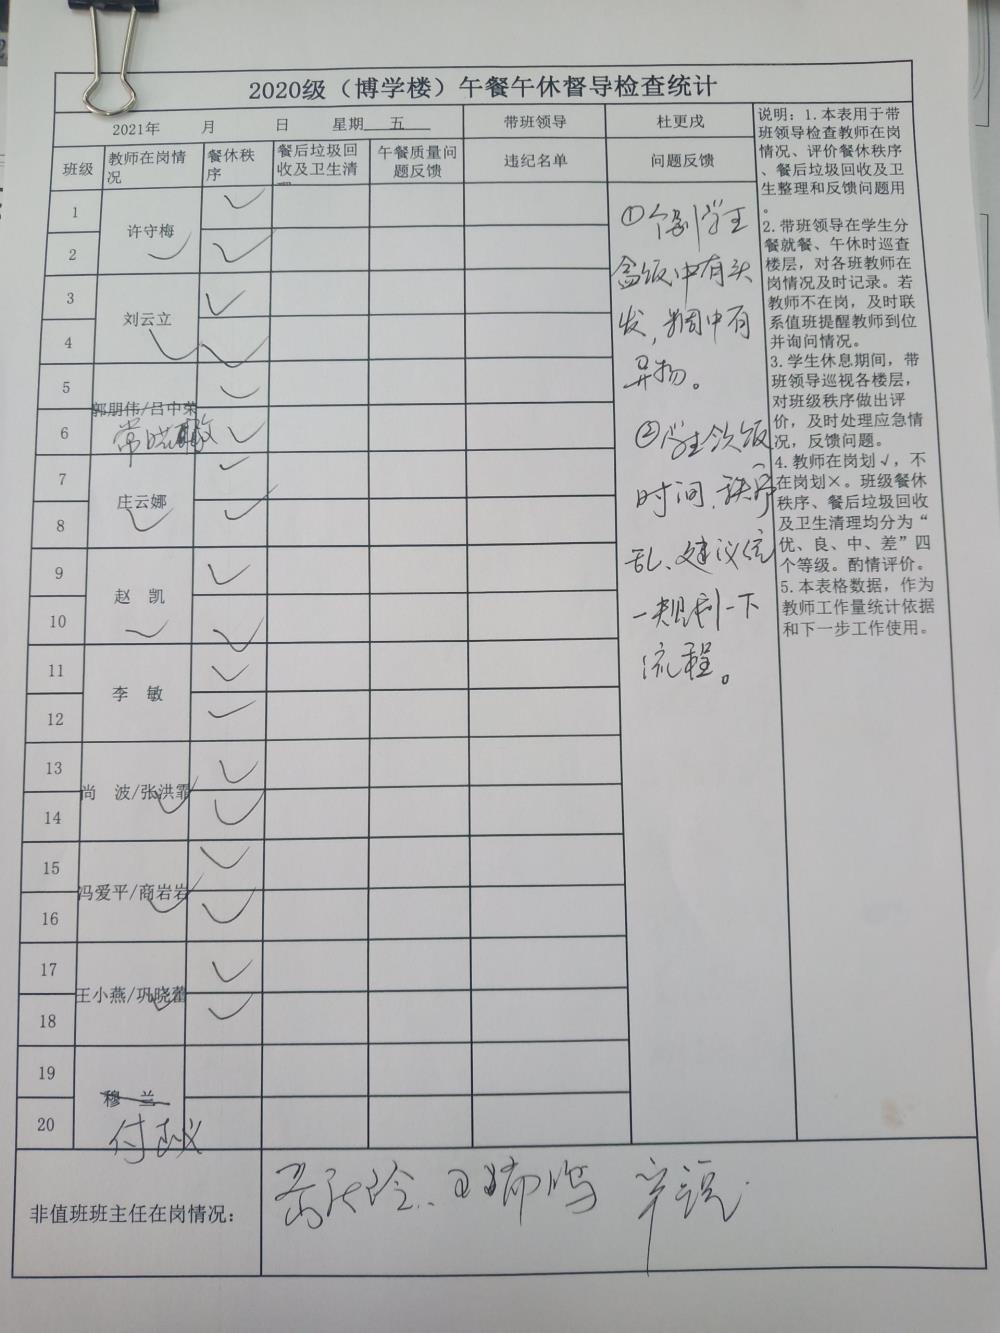 2020级（博学楼）午餐午休督导检查统计
2021年 月 日 星期 五 带班领导 杜更戌
班级 教师在岗情况 餐休秩序 餐后垃圾回收及卫生清 午餐质量问题反馈 违纪名单 问题反馈
1 许守梅 ✓
2 ✓ ✓
3 刘云立 ✓
4 ✓ ✓
5 郭朋伟/吕中荣 ✓
6 常 ✓
7 庄云娜 ✓
8 ✓ ✓
9 赵 凯 ✓
10 ✓ ✓
11 李 敏 ✓
12 ✓
13 尚 波/张洪霏 ✓
14 ✓ ✓
15 冯爱平/商岩岩 ✓
16 ✓ ✓
17 王小燕/巩晓蕾 ✓
18 ✓ ✓
19 穆 兰
20 付
①个别学生
盒饭中有头
发，粥中有
异物。
②学生领饭
时间、秩序
乱、建议统
一规划一下
流程。
说明：1.本表用于带
班领导检查教师在岗
情况、评价餐休秩序
、餐后垃圾回收及卫
生整理和反馈问题用
。
2.带班领导在学生分
餐就餐、午休时巡查
楼层，对各班教师在
岗情况及时记录。若
教师不在岗，及时联
系值班提醒教师到位
并询问情况。
3.学生休息期间，带
班领导巡视各楼层，
对班级秩序做出评
价，及时处理应急情
况，反馈问题。
4.教师在岗划√，不
在岗划×。班级餐休
秩序、餐后垃圾回收
及卫生清理均分为“
优、良、中、差”四
个等级。酌情评价。
5.本表格数据，作为
教师工作量统计依据
和下一步工作使用。
非值班班主任在岗情况：